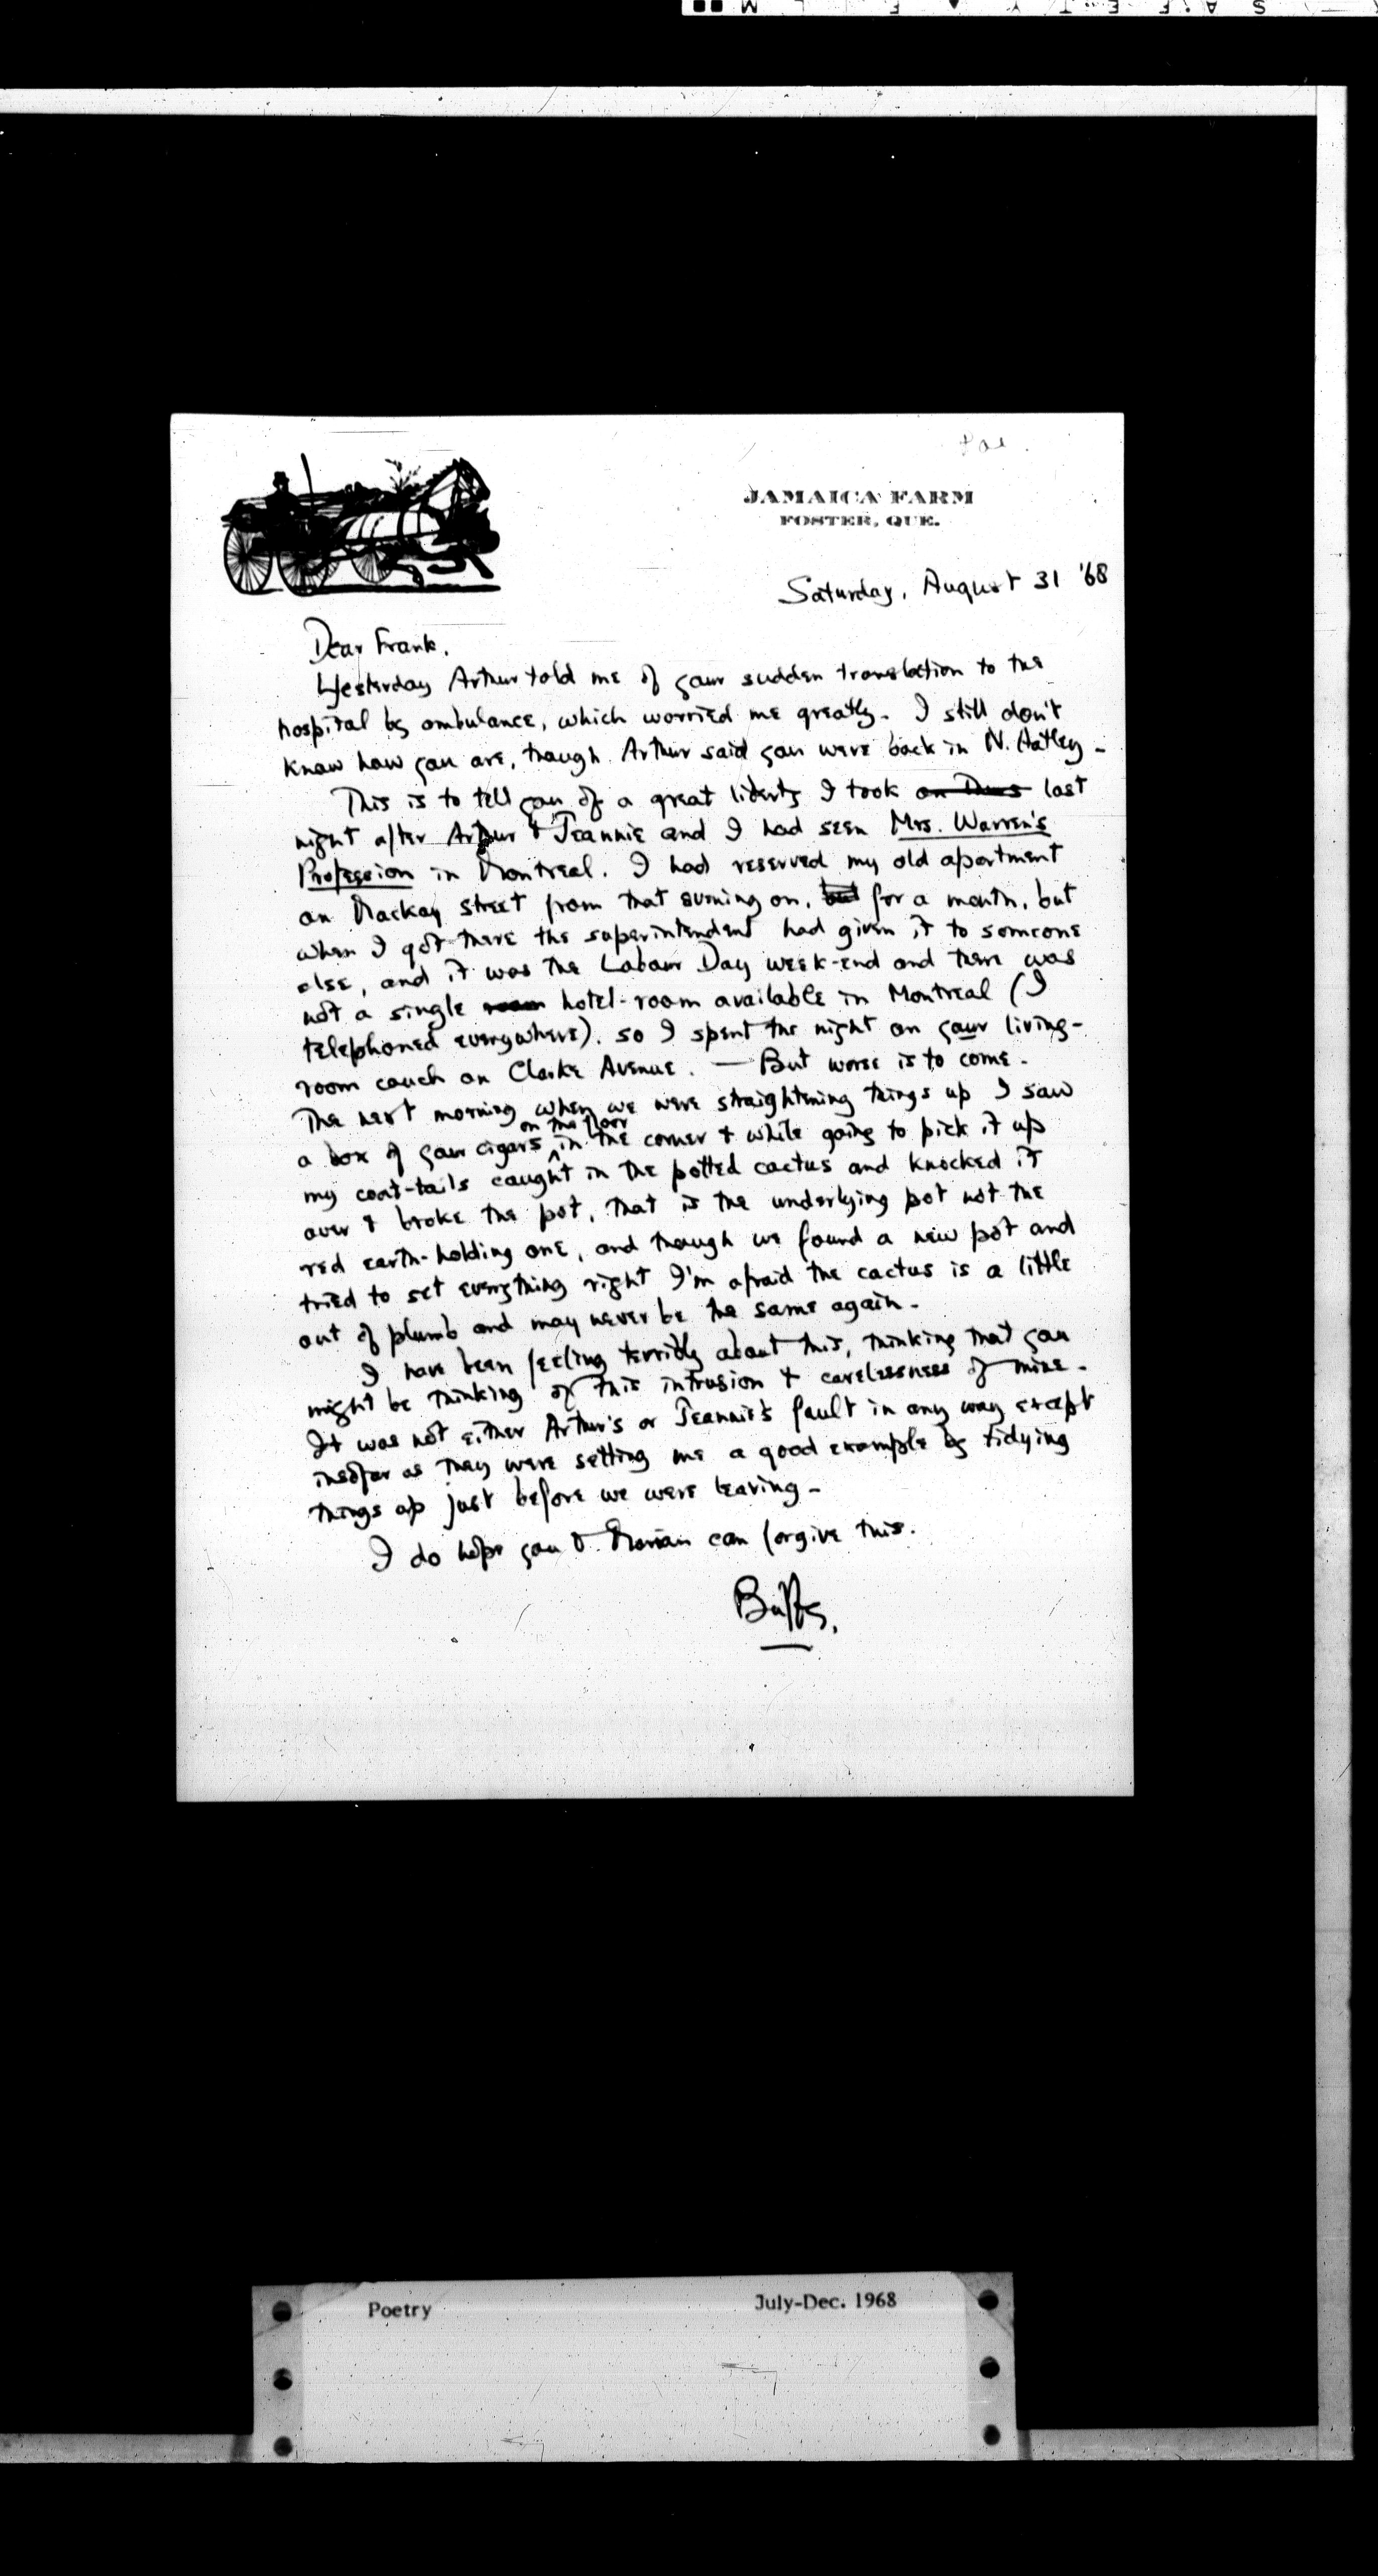 JAMAICA FARM
FOSTER, QUE.
Saturday, August 31 '68
Dear Frank,
Yesterday Arthur told me of your sudden translation to the
hospital by ambulance, which worried me greatly. I still don't
know how you are, though Arthur said you were back in N. Hatley.
This is to tell you of a great liberty I took on Thurs last
night after Arthur & Jeannie and I had seen Mrs. Warren's
Profession in Montreal. I had reserved my old apartment
on Mackay street from that evening on, but for a month, but
when I got there the superintendent had given it to someone
else, and it was the Labour Day week-end and there was
not a single room hotel-room available in Montreal (I
telephoned everywhere). so I spent the night on your living-
room couch on Clarke Avenue. — But worse is to come.
The next morning when we were straightening things up I saw
on the floor
a box of your cigars in the corner & while going to pick it up
my coat-tails caught in the potted cactus and knocked it
over & broke the pot, that is the underlying pot not the
red earth-holding one, and though we found a new pot and
tried to set everything right I'm afraid the cactus is a little
out of plumb and may never be the same again.
I have been feeling terribly about this, thinking that you
might be thinking of this intrusion & carelessness of mine.
It was not either Arthur's or Jeannie's fault in any way except
insofar as they were setting me a good example by tidying
things up just before we were leaving.
I do hope you & Marian can forgive this.
Buffy.
Poetry
July-Dec. 1968